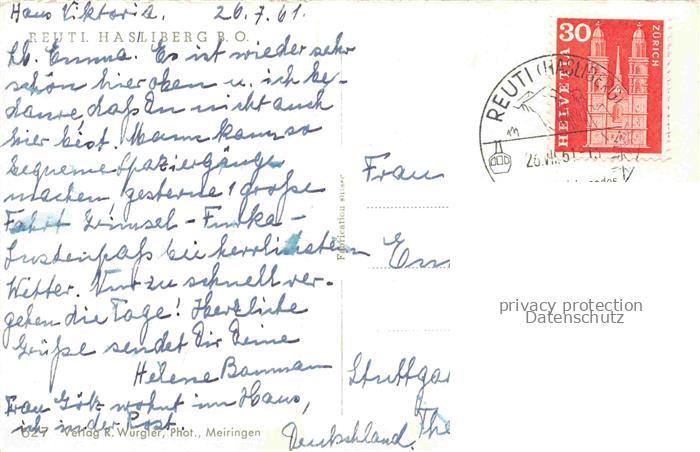 Haus Viktoria. 26.7.61.
REUTI. HASLIBERG B. O.
Lb. Emma. Es ist wieder sehr
schön hier oben u. ich be-
daure, daß Du nicht auch
hier bist. Mann kann so
bequeme Spaziergänge
machen, gestern 1 große
Fahrt Grimsel – Furka –
Sustenpaß bei herrlichstem
Wetter. Nur zu schnell ver-
gehen die Tage! Herzliche
Grüße sendet Dir Deine
Helene Bauman
Frau Götz wohnt im Haus,
ich in der Post.
627 Verlag K. Würgler, Phot., Meiringen
Fabrication suisse
30
HELVETIA
ZÜRICH
REUTI (HASLIBERG)
26.VII.61
Frau
Em
Stuttgar
Deutschland. The
privacy protection
Datenschutz